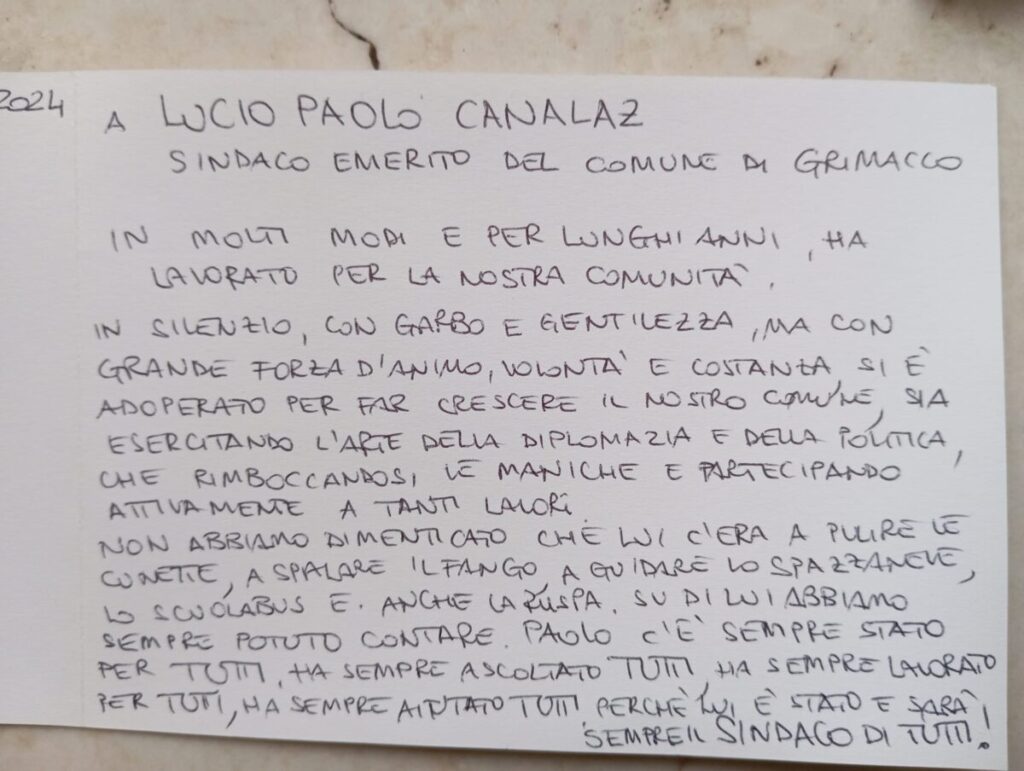 2024
A LUCIO PAOLO CANALAZ
SINDACO EMERITO DEL COMUNE DI GRIMACCO
IN MOLTI MODI E PER LUNGHI ANNI, HA
LAVORATO PER LA NOSTRA COMUNITÀ.
IN SILENZIO, CON GARBO E GENTILEZZA, MA CON
GRANDE FORZA D'ANIMO, VOLONTÀ E COSTANZA, SI È
ADOPERATO PER FAR CRESCERE IL NOSTRO COMUNE, SIA
ESERCITANDO L'ARTE DELLA DIPLOMAZIA E DELLA POLITICA,
CHE RIMBOCCANDOSI LE MANICHE E PARTECIPANDO
ATTIVAMENTE A TANTI LAVORI.
NON ABBIAMO DIMENTICATO CHE LUI C'ERA A PULIRE LE
CUNETTE, A SPALARE IL FANGO, A GUIDARE LO SPAZZANEVE,
LO SCUOLABUS E ANCHE LA RUSPA. SU DI LUI ABBIAMO
SEMPRE POTUTO CONTARE. PAOLO C'È SEMPRE STATO
PER TUTTI, HA SEMPRE ASCOLTATO TUTTI, HA SEMPRE LAVORATO
PER TUTTI, HA SEMPRE AIUTATO TUTTI PERCHÈ LUI È STATO E SARÀ
SEMPRE IL SINDACO DI TUTTI!